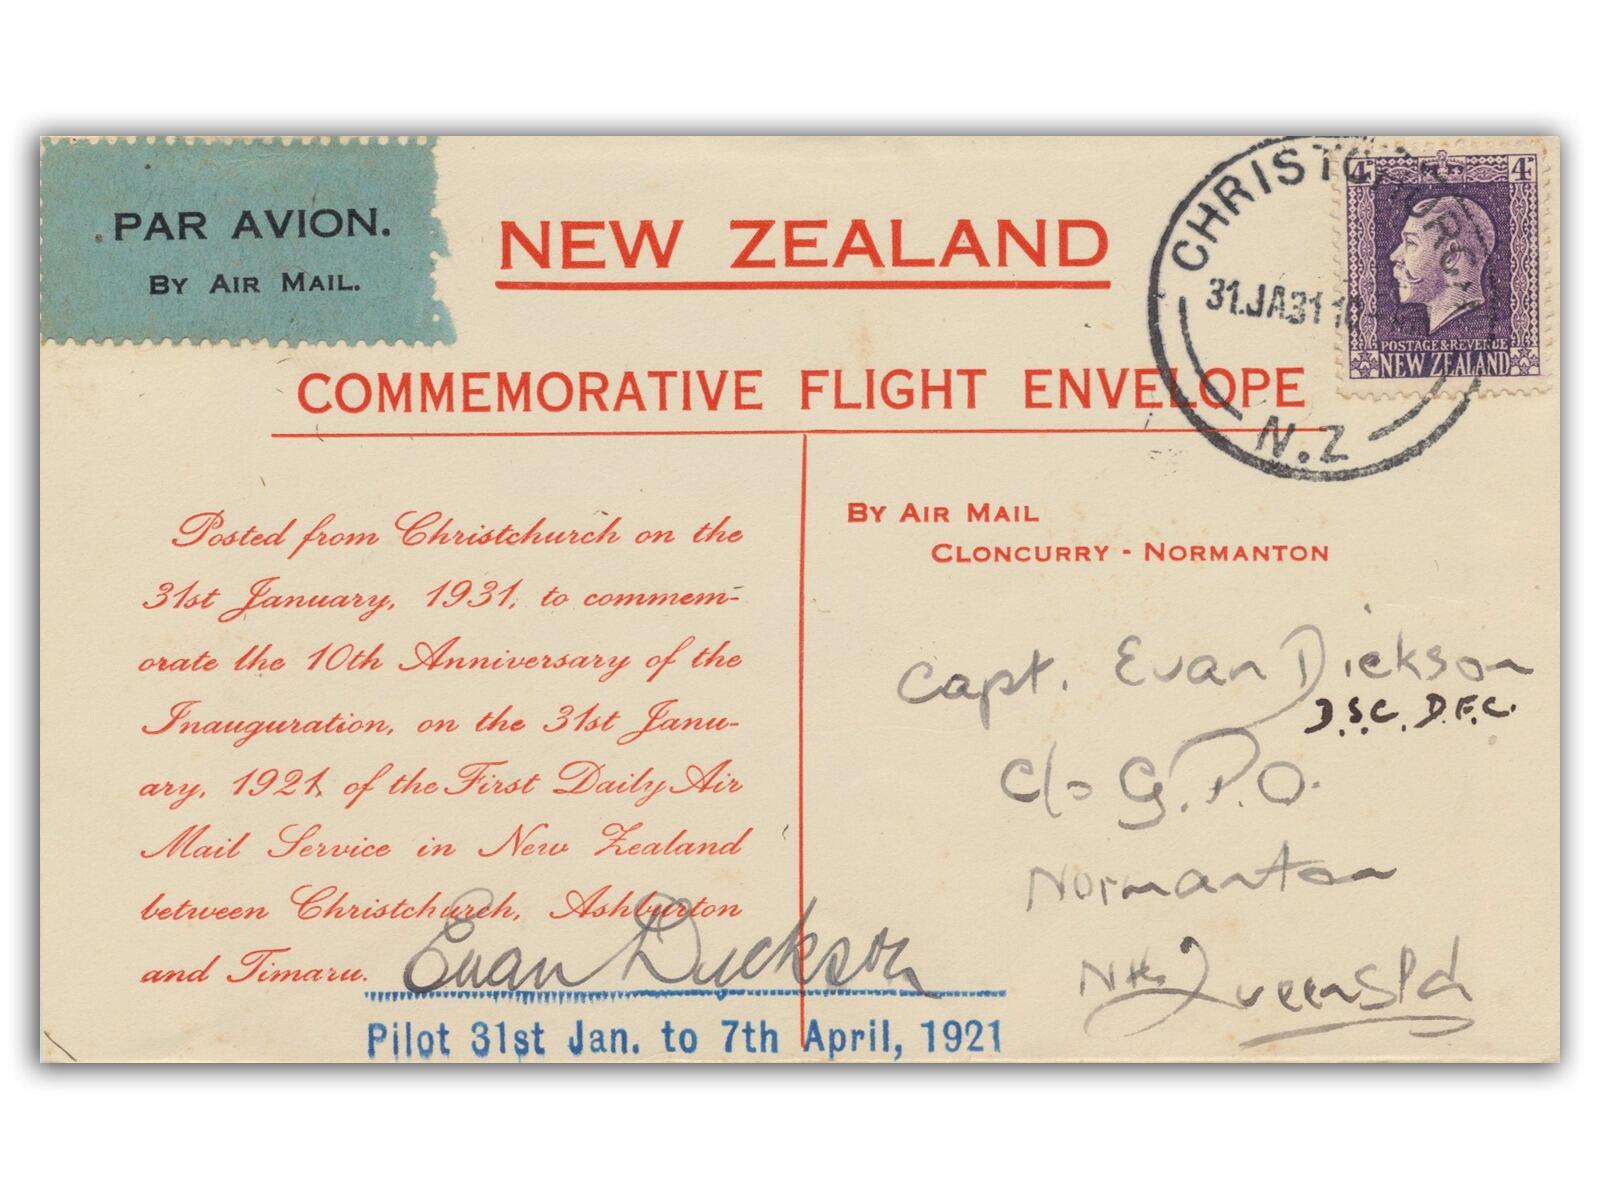 PAR AVION.
BY AIR MAIL.
NEW ZEALAND
COMMEMORATIVE FLIGHT ENVELOPE
CHRISTCHURCH
31.JA31 10
N.Z
4 4
POSTAGE & REVENUE
NEW ZEALAND
Posted from Christchurch on the
31st January, 1931, to commem-
orate the 10th Anniversary of the
Inauguration, on the 31st Janu-
ary, 1921, of the First Daily Air
Mail Service in New Zealand
between Christchurch, Ashburton
and Timaru.
Evan Dickson
Pilot 31st Jan. to 7th April, 1921
BY AIR MAIL
CLONCURRY - NORMANTON
Capt. Evan Dickson
D.S.C. D.F.C.
C/o G.P.O.
Normanton
Nth Queensld